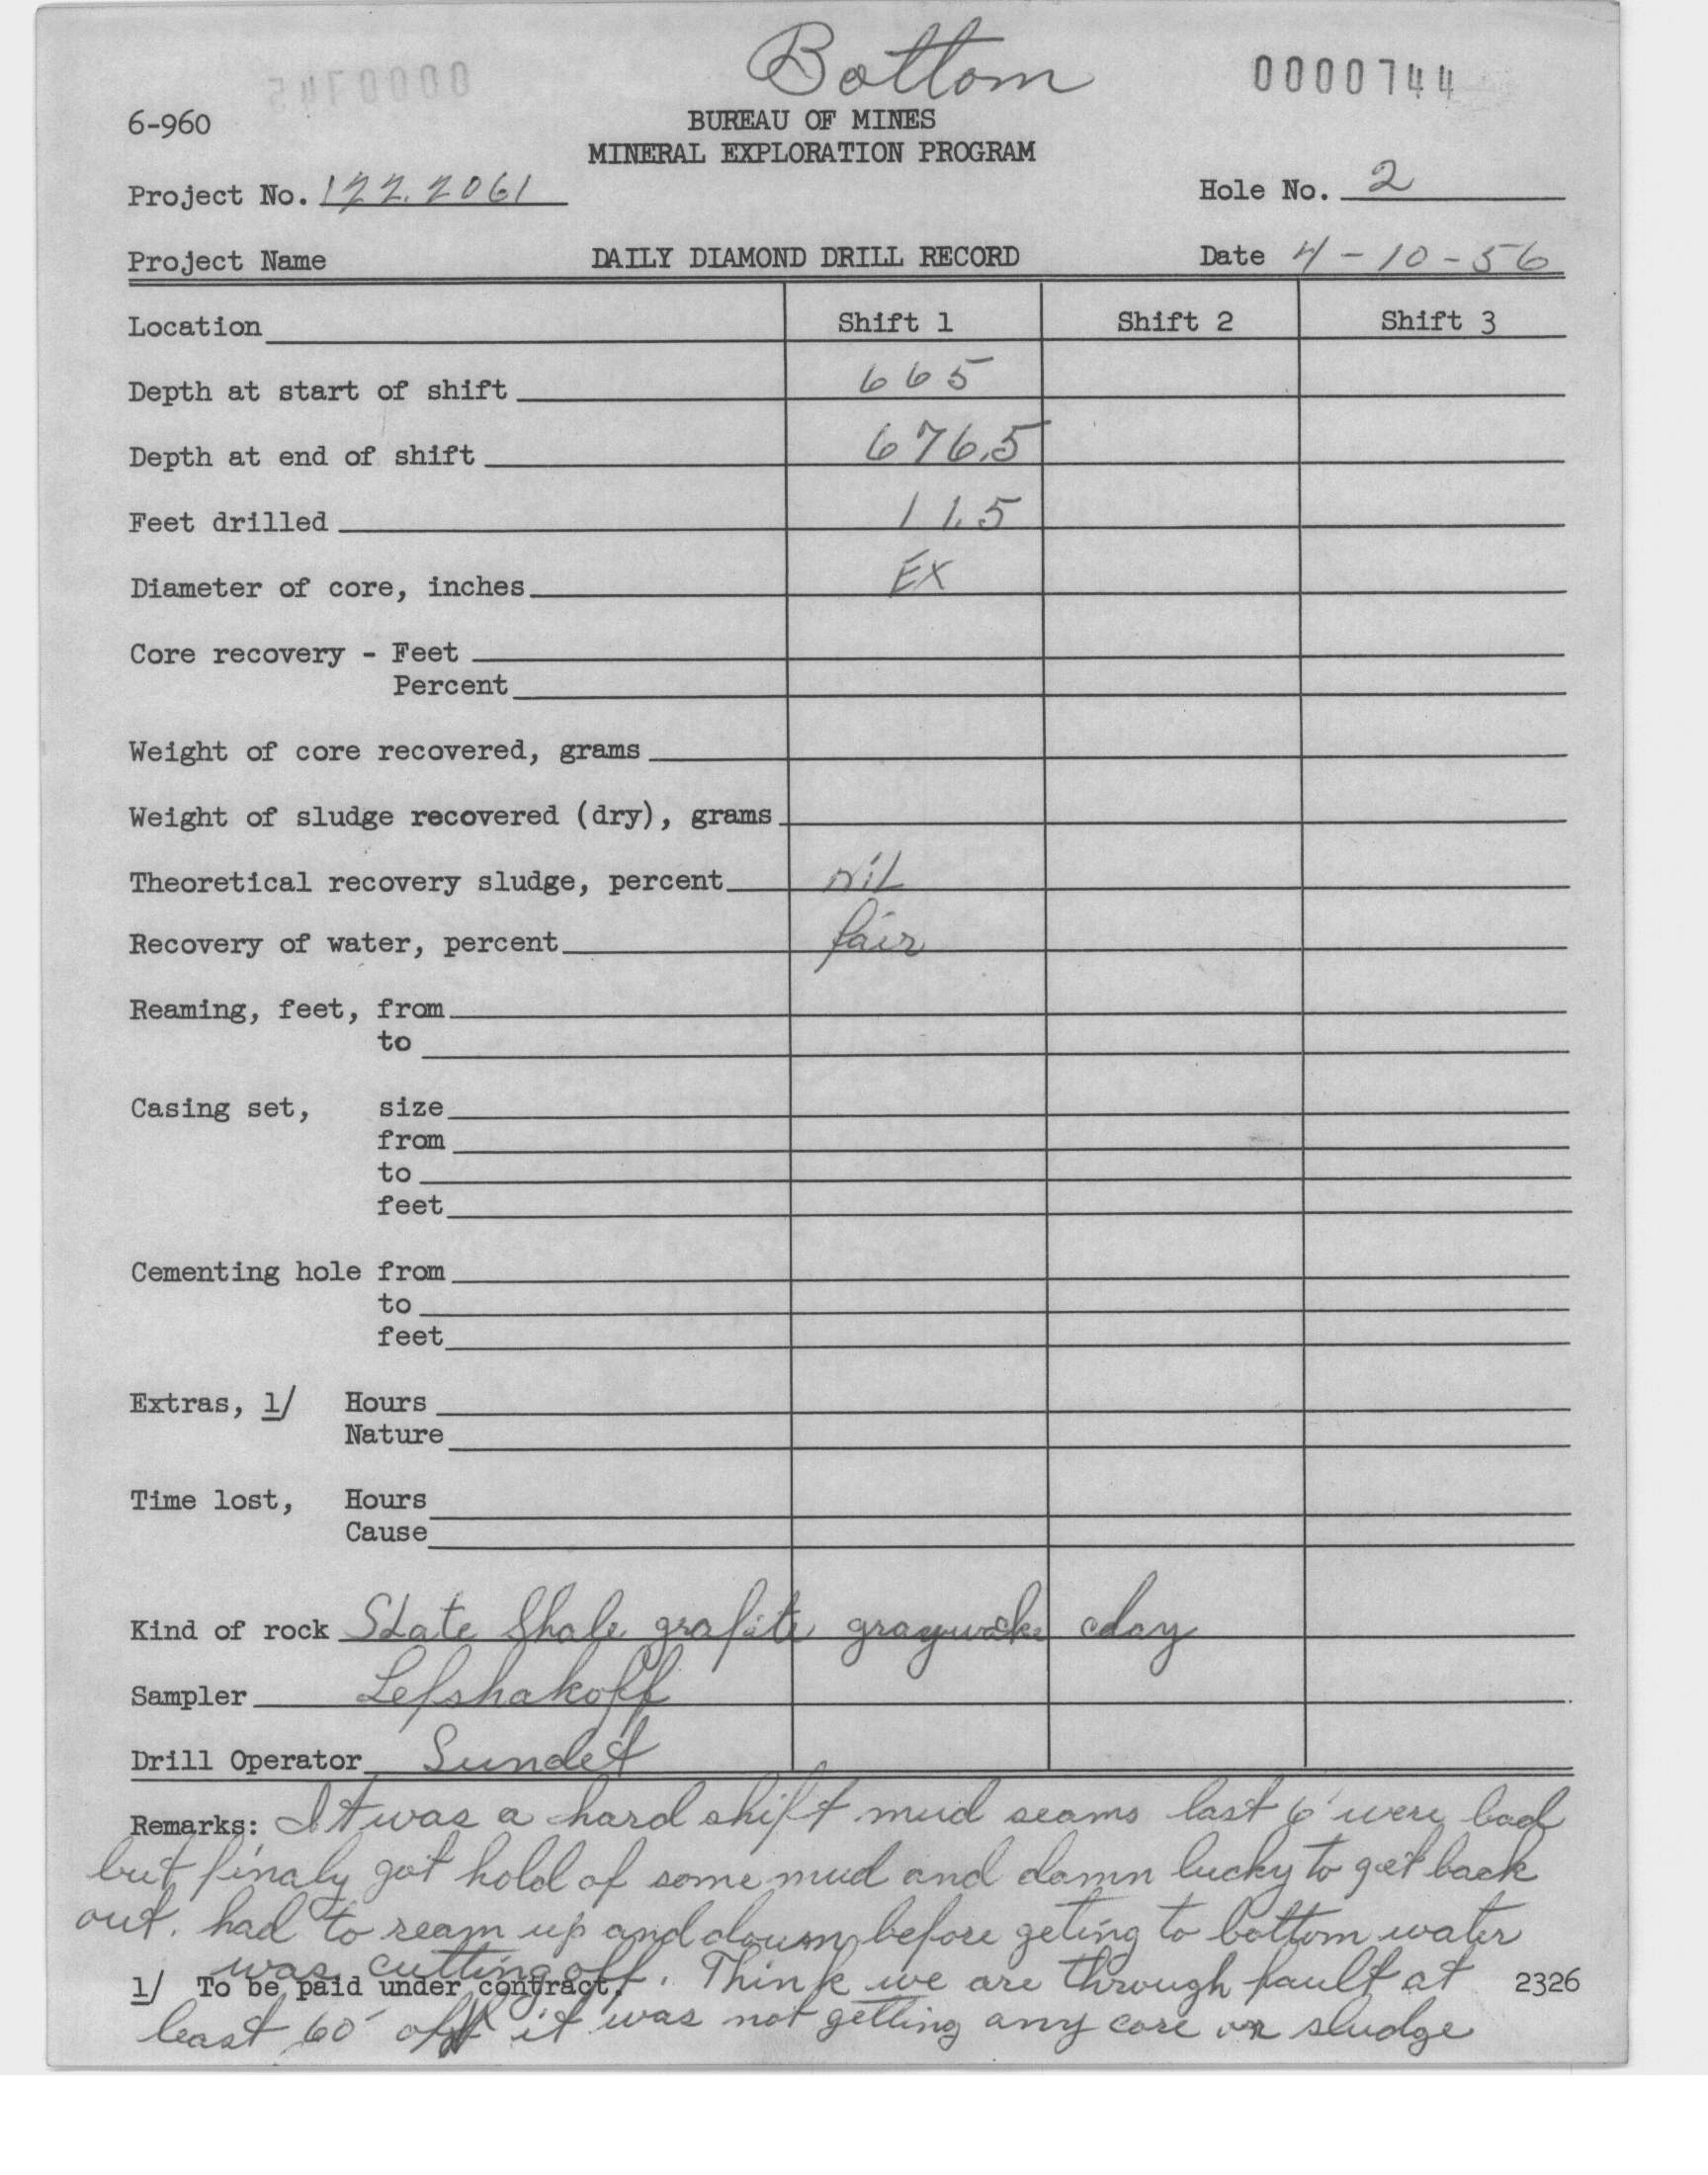 Bottom
0000744
6-960
BUREAU OF MINES
MINERAL EXPLORATION PROGRAM
Project No. 122.2061
Hole No. 2
Project Name DAILY DIAMOND DRILL RECORD Date 4-10-56
Location Shift 1 Shift 2 Shift 3
Depth at start of shift 665
Depth at end of shift 676.5
Feet drilled 11.5
Diameter of core, inches EX
Core recovery - Feet
Percent
Weight of core recovered, grams
Weight of sludge recovered (dry), grams
Theoretical recovery sludge, percent nil
Recovery of water, percent fair
Reaming, feet, from
to
Casing set, size
from
to
feet
Cementing hole from
to
feet
Extras, 1/ Hours
Nature
Time lost, Hours
Cause
Kind of rock Slate Shale grafite graywake clay
Sampler Lefshakoff
Drill Operator Sundet
Remarks: It was a hard shift mud seams last 6' were bad
but finaly got hold of some mud and damn lucky to get back
out. had to ream up and down before geting to bottom water
was cutting off. Think we are through fault at
1/ To be paid under contract. 2326
least 60' of it was not getting any core or sludge